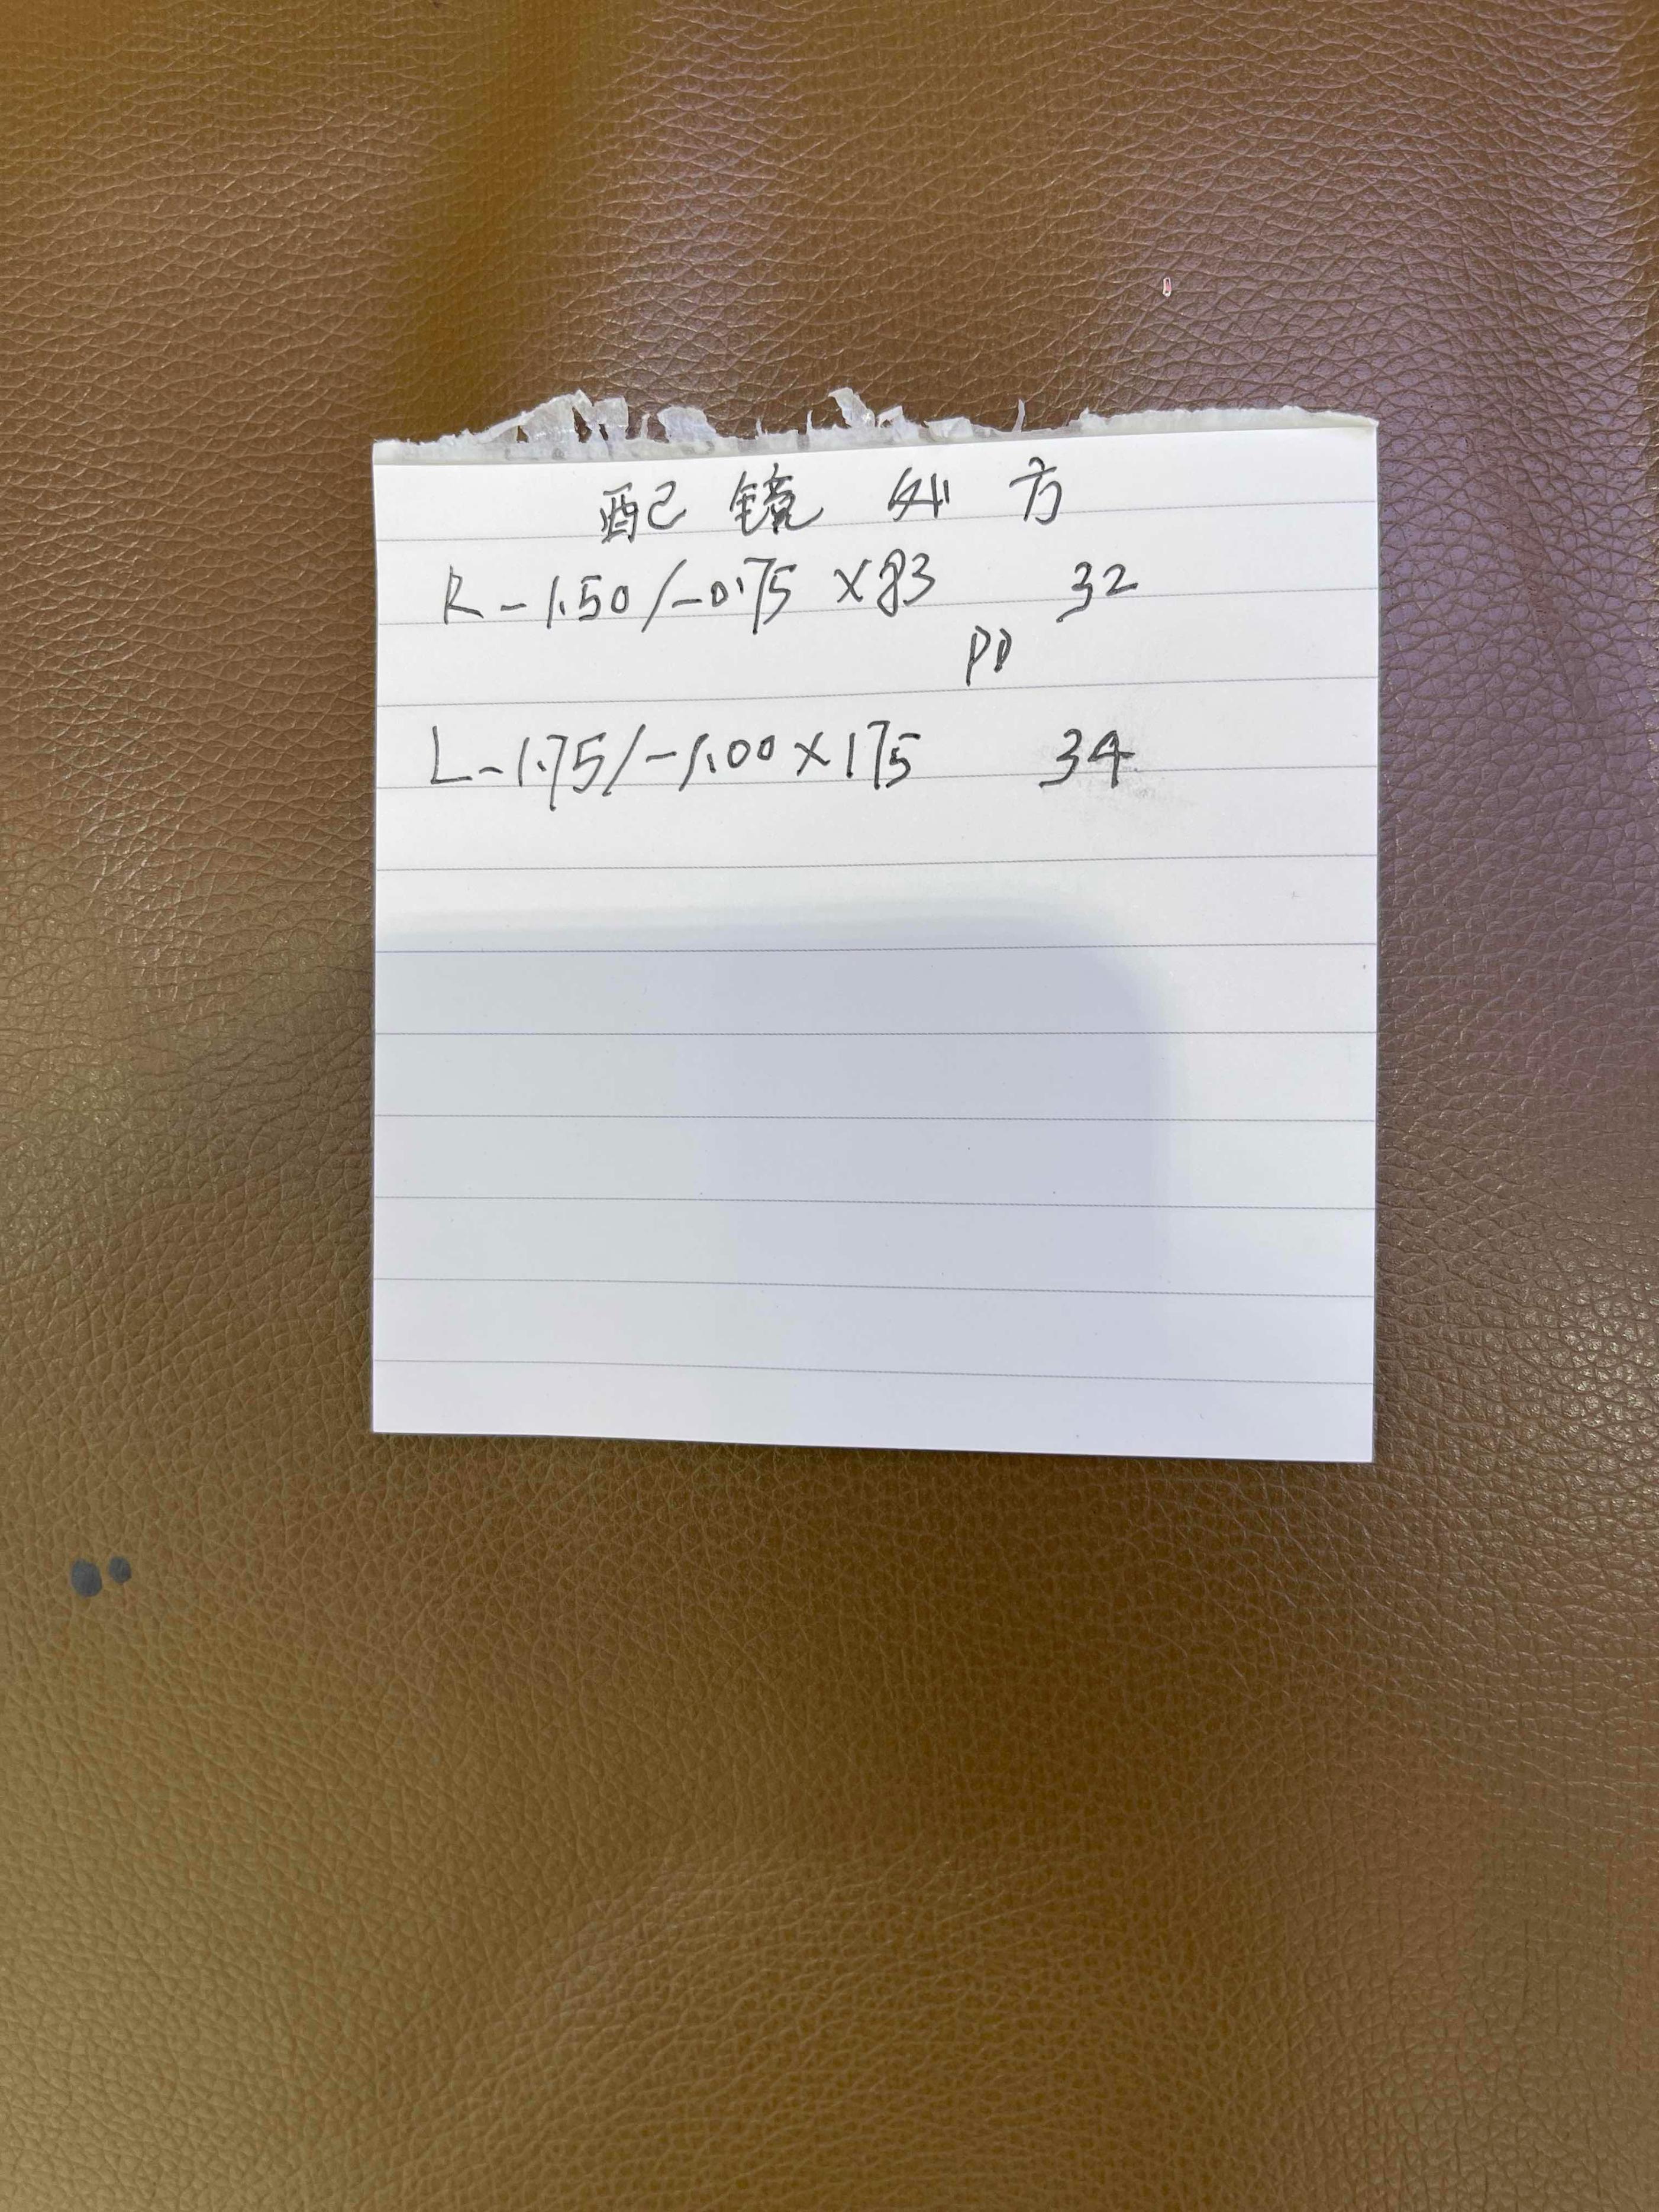 配镜处方
R -1.50/-0.75 ×83 32
PD
L -1.75/-1.00×175 34